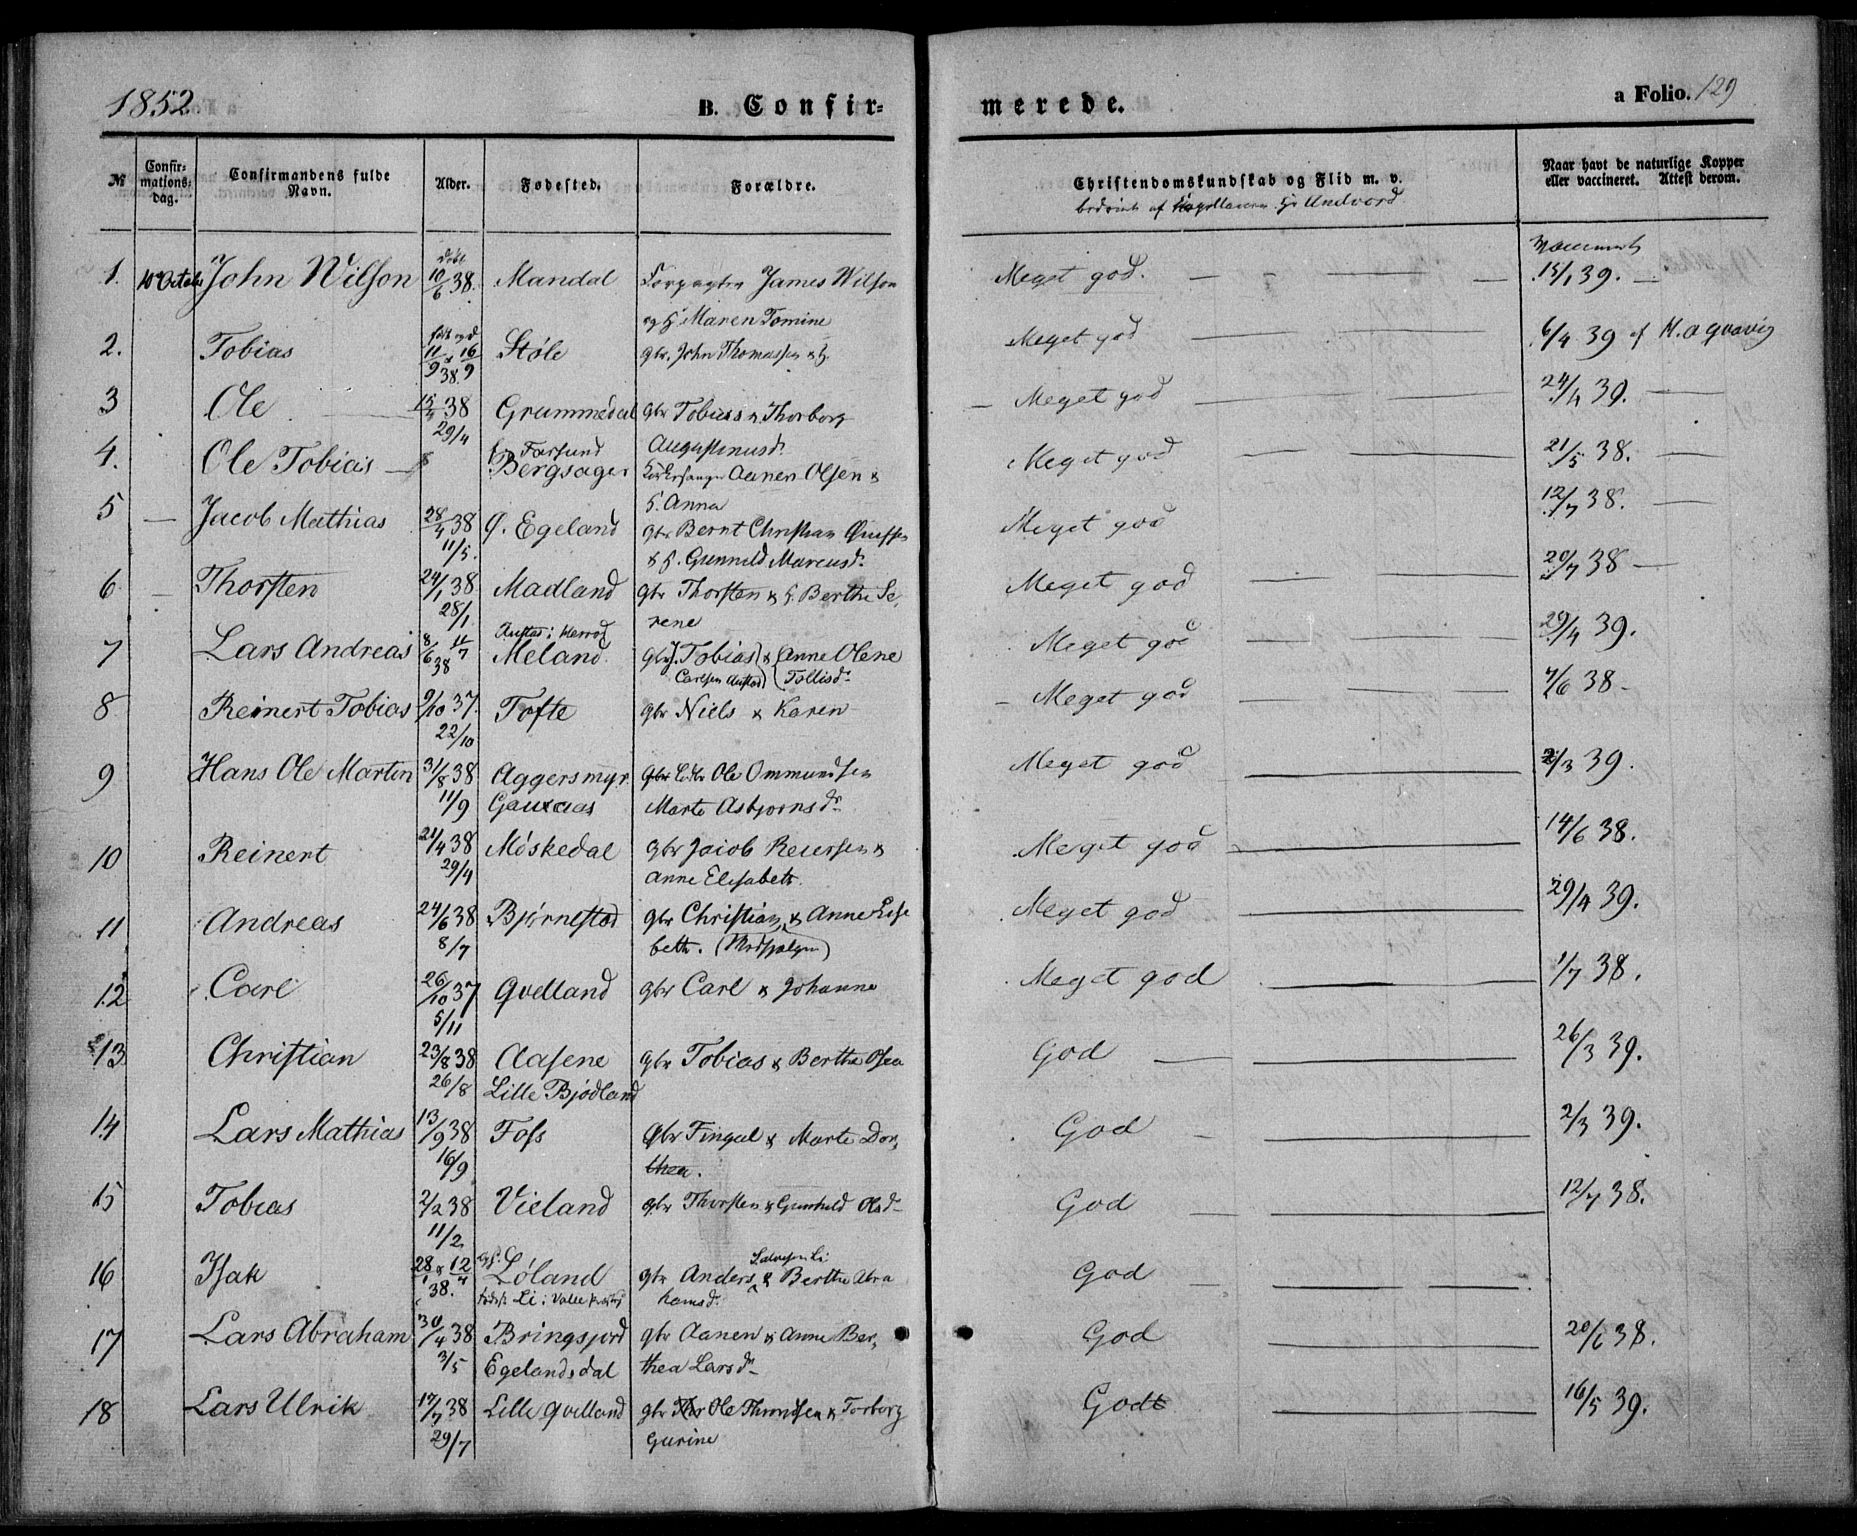 1852
B. Confir-
merede.
a Folio. 129
№
Confir-
mations-
dag.
Confirmandens fulde
Navn.
Alder.
Fødested.
Forældre.
Christendomskundskab og Flid m. v.
Naar havt de naturlige Kopper
eller vaccineret. Attest derom.
1. John Wilson 10/6 38. Mandal James Wilson Meget god. 15/1 39.
Maren Tomine
2. Tobias 11/9 & 16/9 38. Støle gbr. John Thomassen & H. Meget god 6/4 39 af
3 Ole 15/4 38 Grummedal gbr Tobias & Thorborg Meget god 24/4 39.
29/4 Farsund Augustinusd.
4. Ole Tobias Bergsager Kirkesanger Aanen Olsen & Meget god 21/5 38.
H. Anna
5 Jacob Mathias 28/4 38 Ø. Egeland gbr Bernt Christian Meget god 12/7 38.
11/5. & H. Gunnild Marcusd.
6 Thorsten 24/1 38 Madland gbr Thorsten & H. Berthe Se- Meget god 29/7 38
28/1 rene
7 Lars Andreas 8/6 38 Meland gbr Tobias & Anne Olene Meget god 29/4 39.
Carlsen Tollisd.
8 Reinert Tobias 9/10 37. Tofte gbr Niels & Karen Meget god 7/6 38
22/10
9 Hans Ole Martin 31/8 38 Aggersmyr Ole Ommundsen Meget god 2/3 39.
11/9 Marte Asbjørnsd.
10 Reinert 21/4 38 Møskedal gbr Jacob Reiersen & Meget god 14/6 38.
29/4 Anne Elisabeth.
11 Andreas 24/6 38 Bjørnestad gbr Christian & Anne Elise Meget god 29/4 39.
8/7 beth.
12 Carl 26/10 37 Qvelland gbr Carl & Johanne Meget god 1/7 38.
5/11
13 Christian 23/8 38 Aasene gbr Tobias & Berthe Olea God 26/3 39.
26/8 Lille Bjødland
14 Lars Mathias 13/9 38 Foss Gbr Fingal & Marte Dor- God 2/3 39.
16/9 thea.
15 Tobias 2/2 38 Vieland gbr Thorsten & Gunhild Olsd. God 12/7 38.
11/2
16 Isak 28/1 & 12/4 38. Løland gbr Anders & Berthe Abra God
Li i Valle hamsd.
17 Lars Abraham 30/4 38 Bringsjord gbr Aanen & Anne Ber- God 20/6 38.
3/5 Egelandsdal thea Larsd.
18 Lars Ulrik 17/7 38 Lille Qvelland gbr Ole & Torborg Godt 16/5 39.
29/7 Gurine